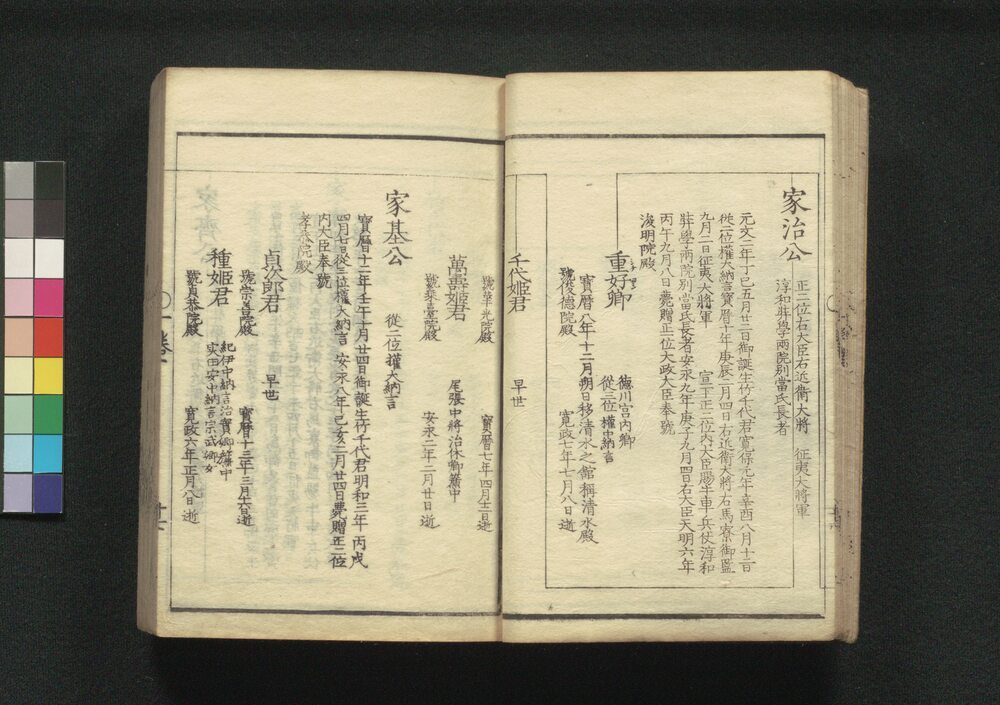 家治公
正二位右大臣右近衛大將　征夷大將軍
淳和奘學兩院別當氏長者
元文二年丁巳五月廿二日御誕生竹千代君寛保元年辛酉八月十二日
從二位權大納言寶曆十年庚辰二月四日右近衛大將右馬寮御監
九月二日征夷大將軍　宣下正二位內大臣賜牛車兵仗淳和
奘學兩院別當氏長者安永九年庚子九月四日右大臣天明六年
丙午九月八日薨贈正一位太政大臣奉號
浚明院殿
重好卿
德川宮內卿
從三位權中納言
寶曆八年十二月朔日移清水之館稱清水殿
號俊德院殿　寛政七年七月八日逝
千代姬君　早世
號華光院殿　寶曆七年四月十二日逝
萬壽姬君　尾張中將治休卿簾中
號乘臺院殿　安永二年二月廿日逝
家基公　從二位權大納言
寶曆十二年壬午十月廿四日御誕生竹千代君明和三年丙戌
四月七日從二位權大納言　安永八年己亥二月廿四日薨贈正二位
內大臣奉號
孝恭院殿
貞次郎君　早世
號崇善院殿　寶曆十三年三月十六日逝
種姬君
紀伊中納言治寶卿簾中
實田安中納言宗武卿女
號貞恭院殿　寛政六年正月八日逝
卷一